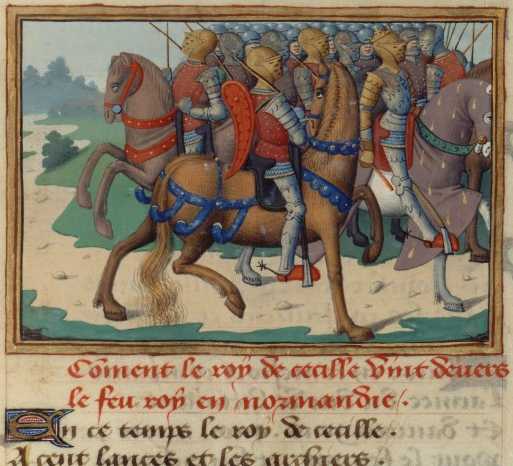 Coment le roy de cecille vint devers
le feu roy en normandie /
En ce temps le roy de cecille.
A cent lances et ses archiers.